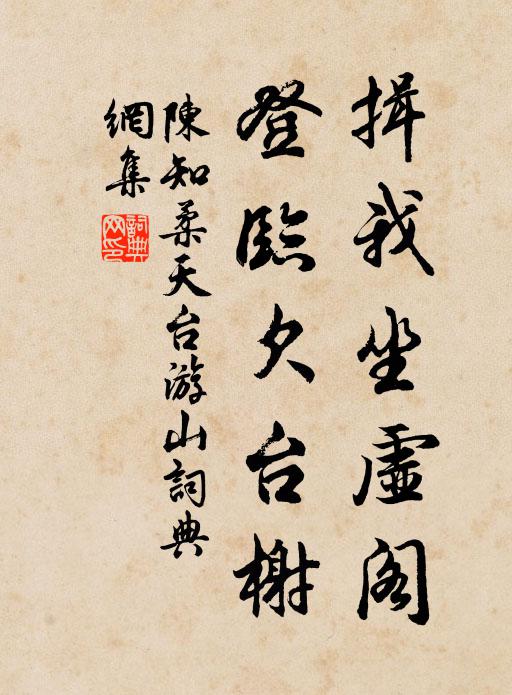 揖我坐虛阁
登臨欠台榭
陳知柔天台游山詞典
網集
詞典
网印